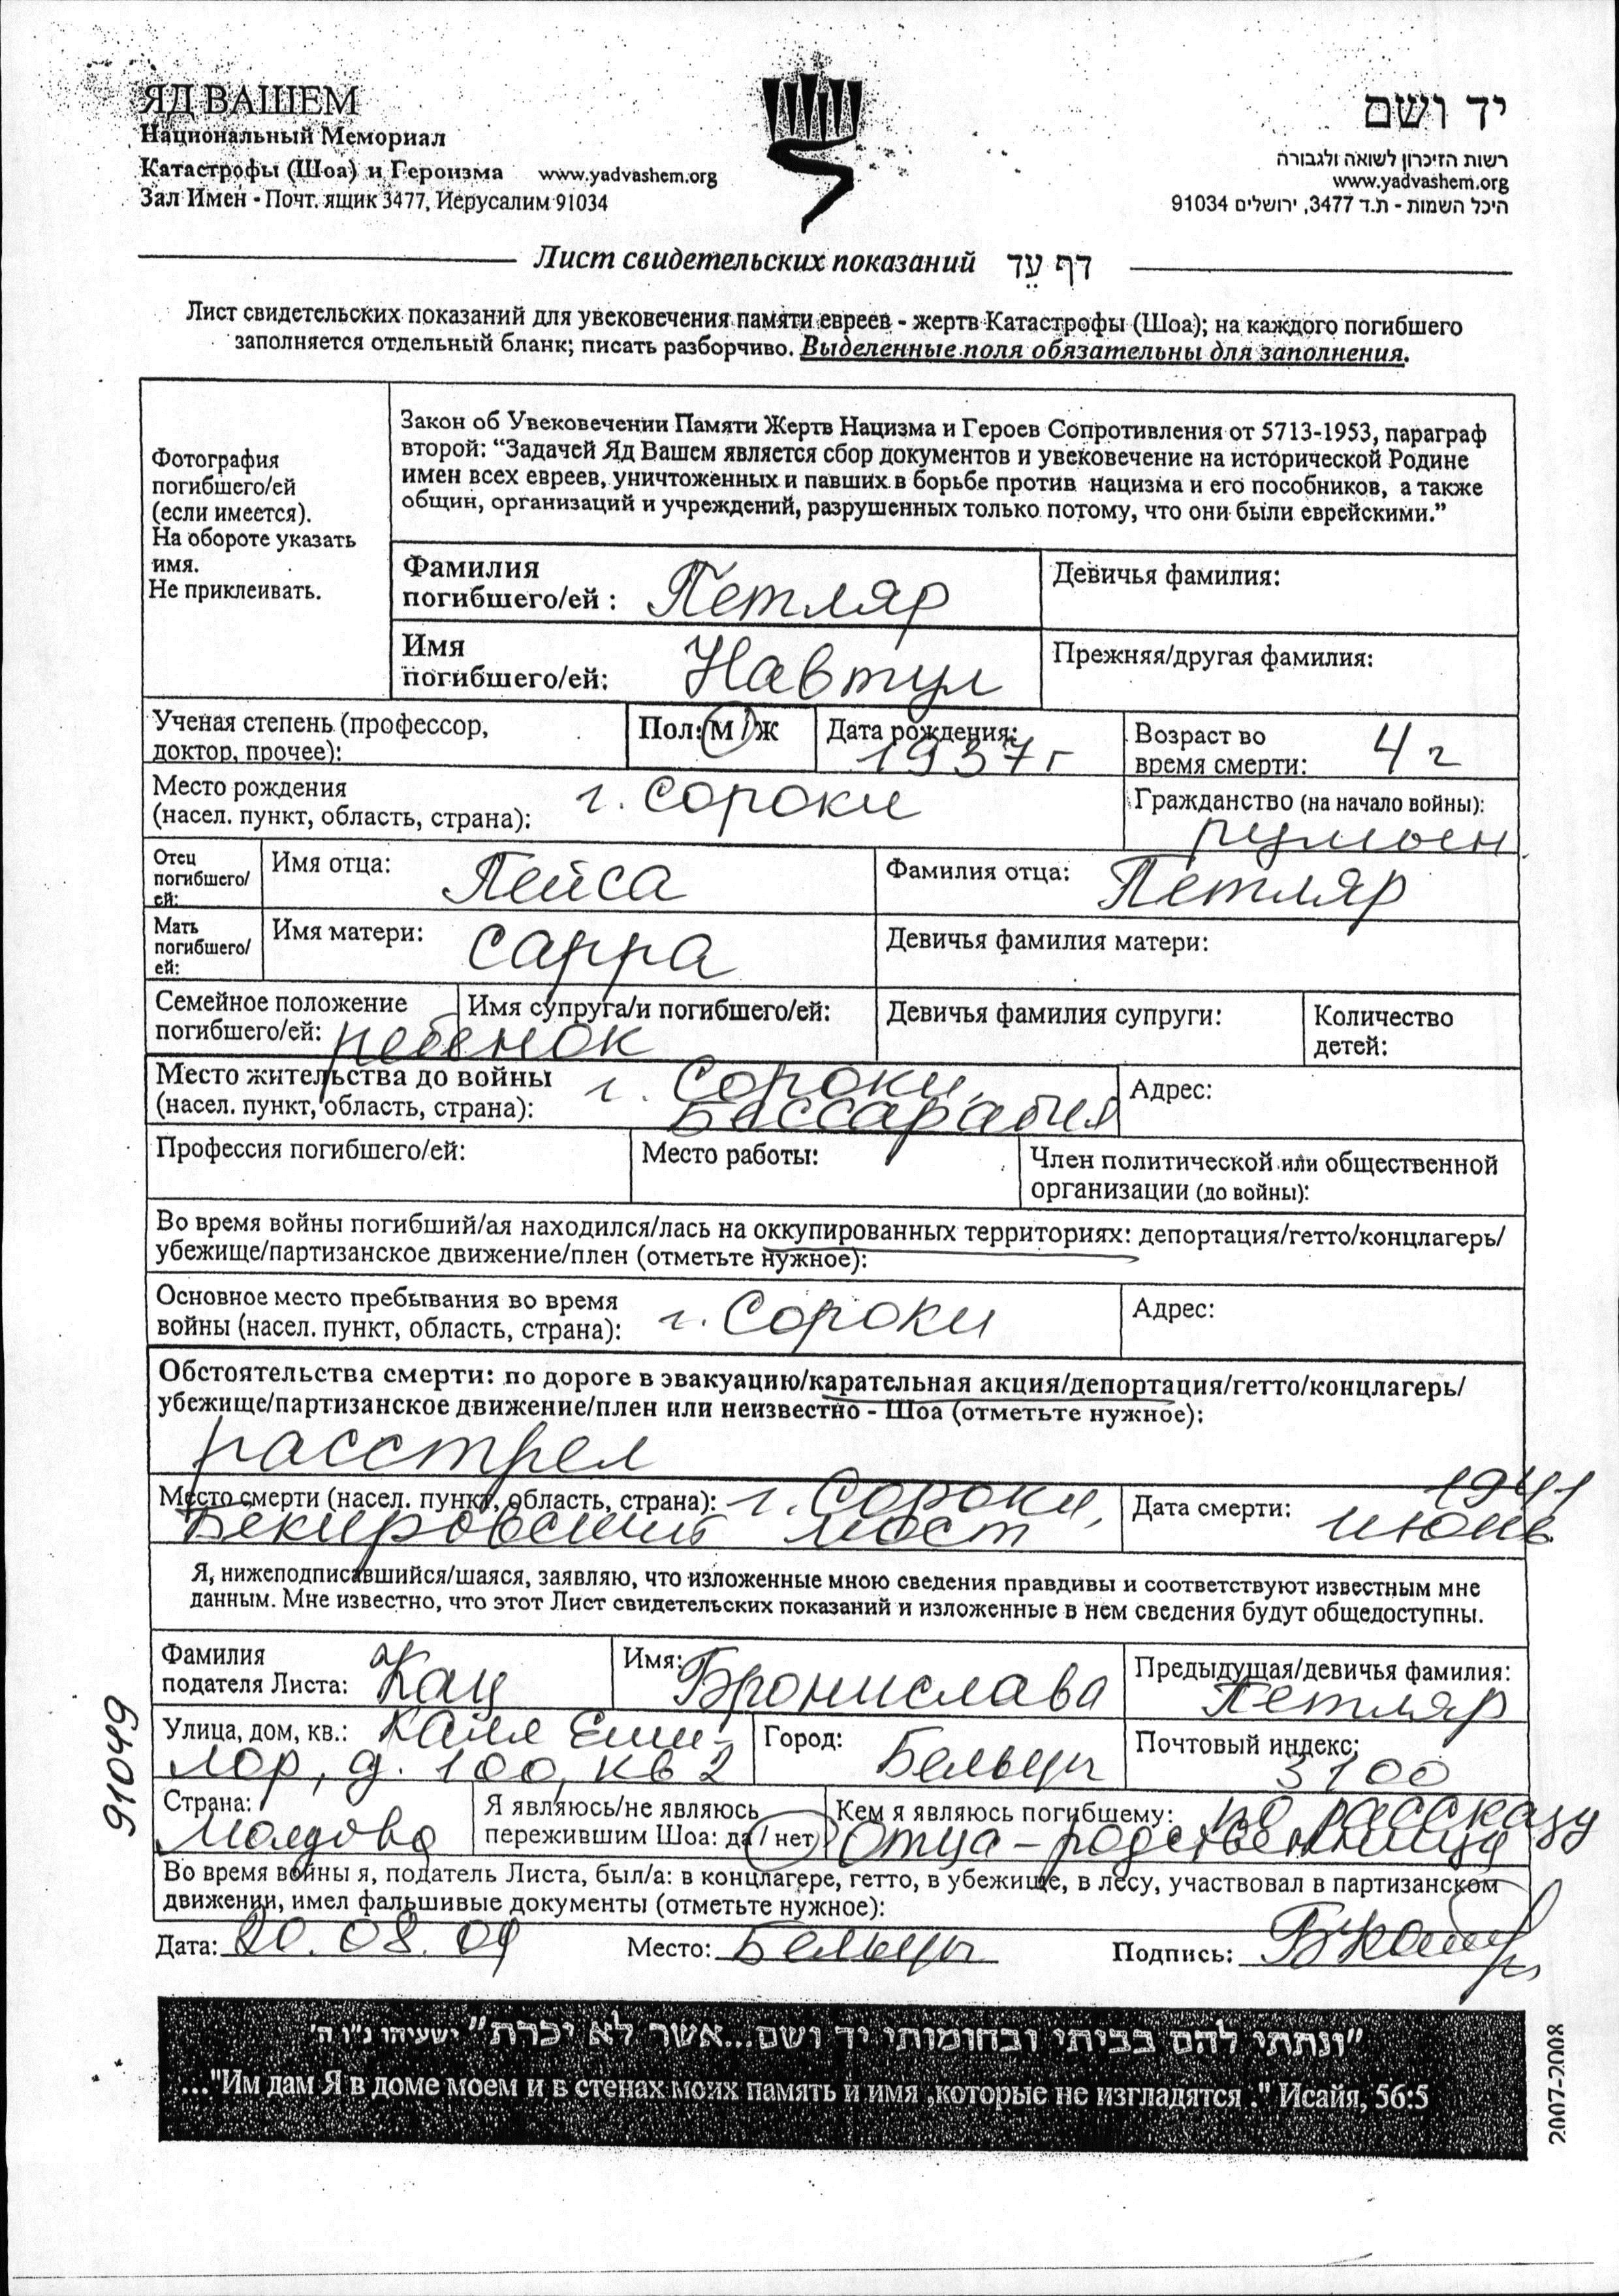 ЯД ВАШЕМ
Национальный Мемориал
Катастрофы (Шоа) и Героизма www.yadvashem.org
Зал Имен - Почт. ящик 3477, Иерусалим 91034
יד ושם
רשות הזיכרון לשואה ולגבורה
www.yadvashem.org
היכל השמות - ת.ד 3477, ירושלים 91034
Лист свидетельских показаний דף עֵד
Лист свидетельских показаний для увековечения памяти евреев - жертв Катастрофы (Шоа); на каждого погибшего
заполняется отдельный бланк; писать разборчиво. Выделенные поля обязательны для заполнения.
Фотография
погибшего/ей
(если имеется).
На обороте указать
имя.
Не приклеивать.
Закон об Увековечении Памяти Жертв Нацизма и Героев Сопротивления от 5713-1953, параграф
второй: “Задачей Яд Вашем является сбор документов и увековечение на исторической Родине
имен всех евреев, уничтоженных и павших в борьбе против нацизма и его пособников, а также
общин, организаций и учреждений, разрушенных только потому, что они были еврейскими.”
Фамилия
погибшего/ей : Петляр
Девичья фамилия:
Имя
погибшего/ей: Навтул
Прежняя/другая фамилия:
Ученая степень (профессор,
доктор, прочее):
Пол: М / Ж
Дата рождения:
1937г
Возраст во
время смерти: 4 г
Место рождения
(насел. пункт, область, страна): г. Сороки
Гражданство (на начало войны):
румын.
Отец
погибшего/
ей:
Имя отца: Пейса
Фамилия отца: Петляр
Мать
погибшего/
ей:
Имя матери: Сарра
Девичья фамилия матери:
Семейное положение
погибшего/ей: ребенок
Имя супруга/и погибшего/ей:
Девичья фамилия супруги:
Количество
детей:
Место жительства до войны г. Сороки,
(насел. пункт, область, страна): Бессарабия
Адрес:
Профессия погибшего/ей:
Место работы:
Член политической или общественной
организации (до войны):
Во время войны погибший/ая находился/лась на оккупированных территориях: депортация/гетто/концлагерь/
убежище/партизанское движение/плен (отметьте нужное):
Основное место пребывания во время
войны (насел. пункт, область, страна): г. Сороки
Адрес:
Обстоятельства смерти: по дороге в эвакуацию/карательная акция/депортация/гетто/концлагерь/
убежище/партизанское движение/плен или неизвестно - Шоа (отметьте нужное):
расстрел
Место смерти (насел. пункт, область, страна): г. Сороки,
Бекировский мост
1941
Дата смерти: июнь
Я, нижеподписавшийся/шаяся, заявляю, что изложенные мною сведения правдивы и соответствуют известным мне
данным. Мне известно, что этот Лист свидетельских показаний и изложенные в нем сведения будут общедоступны.
Фамилия
подателя Листа: Кац
Имя: Бронислава
Предыдущая/девичья фамилия:
Петляр
Улица, дом, кв.: Каля Еши-
лор, д. 100, кв 2
Город: Бельцы
Почтовый индекс:
3100
Страна:
Молдова
Я являюсь/не являюсь
пережившим Шоа: да / нет
Кем я являюсь погибшему: по рассказу
отца - родственница
Во время войны я, податель Листа, был/а: в концлагере, гетто, в убежище, в лесу, участвовал в партизанском
движении, имел фальшивые документы (отметьте нужное):
Дата: 20. 08. 09 Место: Бельцы Подпись:
"ונתתי להם בביתי ובחומותי יד ושם...אשר לא יכרת" ישעיהו נ"ו ה'
..."Им дам Я в доме моем и в стенах моих память и имя ,которые не изгладятся ." Исайя, 56:5
91049
2007-2008